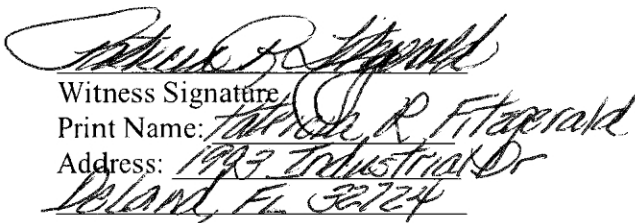 Patricia R Fitzgerald
Witness Signature
Print Name: Patricia R Fitzgerald
Address: 1993 Industrial Dr
DeLand, FL 32724